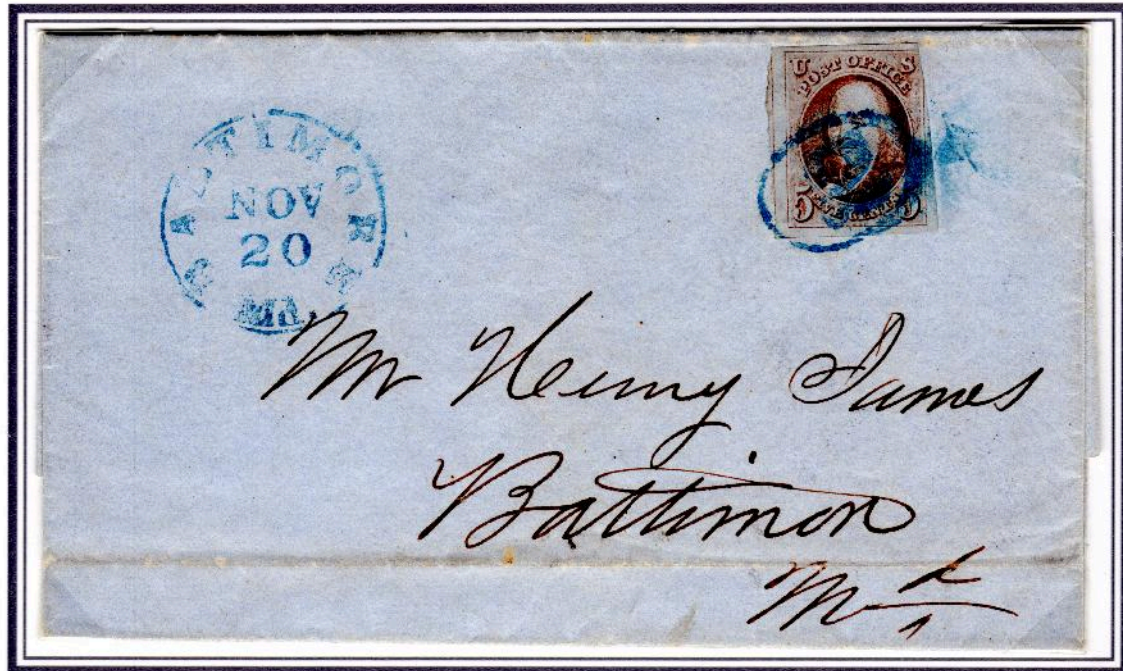 BALTIMORE
NOV
20
MD.
U S
POST OFFICE
5 FIVE CENTS 5
Mr Henry James
Baltimore
Md